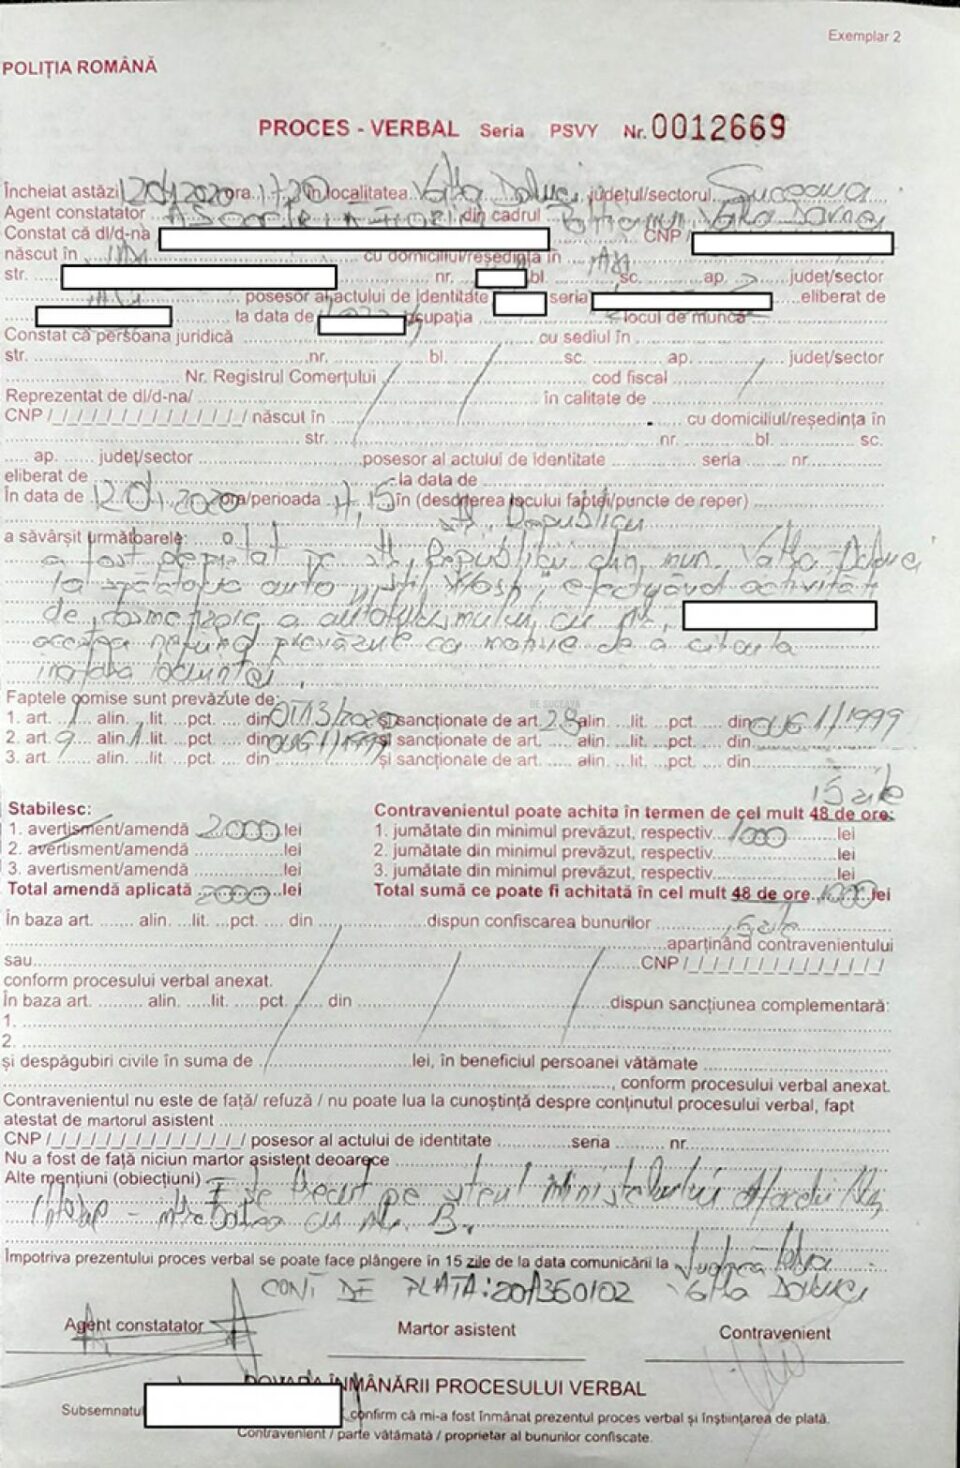 Exemplar 2
POLIȚIA ROMÂNĂ
PROCES - VERBAL Seria PSVY Nr. 0012669
Încheiat astăzi ora 17 20 în localitatea Vatra Dornei județul/sectorul Suceava
Agent constatator din cadrul Vatra Dornei
Constat că dl/d-na CNP /
născut în cu domiciliul/reședința în
str. nr. bl. sc. ap. județ/sector
posesor al actului de identitate seria eliberat de
la data de ocupația locul de muncă
Constat că persoana juridică cu sediul în
str. nr. bl. sc. ap. județ/sector
Nr. Registrul Comerțului cod fiscal
Reprezentat de dl/d-na/ în calitate de
CNP /_/_/_/_/_/_/_/_/_/_/_/_/_/ născut în cu domiciliul/reședința în
str. nr. bl. sc.
ap. județ/sector posesor al actului de identitate seria nr.
eliberat de la data de
În data de ora/perioada 17,15 în (descrierea locului faptei/puncte de reper)
str. Republicii
a săvârșit următoarele:
a fost depistat pe str. Republicii din mun. Vatra Dornei
la spălătorie auto efectuând activități
de cosmetizare a autoturismului cu nr.
acestea nefiind prevăzute ca motive de a
locuinței.
Faptele comise sunt prevăzute de:
1. art. 1 alin. lit. pct. din și sancționate de art. 28 alin. lit. pct. din OUG 1/1999
2. art. 9 alin. 1 lit. pct. din OUG 1/1999 și sancționate de art. alin. lit. pct. din
3. art. alin. lit. pct. din și sancționate de art. alin. lit. pct. din
15 zile
Stabilesc: Contravenientul poate achita în termen de cel mult 48 de ore:
1. avertisment/amendă 2000 lei 1. jumătate din minimul prevăzut, respectiv 1000 lei
2. avertisment/amendă lei 2. jumătate din minimul prevăzut, respectiv lei
3. avertisment/amendă lei 3. jumătate din minimul prevăzut, respectiv lei
Total amendă aplicată 2000 lei Total sumă ce poate fi achitată în cel mult 48 de ore 1000 lei
În baza art. alin. lit. pct. din dispun confiscarea bunurilor
aparținând contravenientului
sau CNP /_/_/_/_/_/_/_/_/_/_/_/_/_/
conform procesului verbal anexat.
În baza art. alin. lit. pct. din dispun sancțiunea complementară:
1.
2.
și despăgubiri civile în suma de lei, în beneficiul persoanei vătămate
, conform procesului verbal anexat.
Contravenientul nu este de față/ refuză / nu poate lua la cunoștință despre conținutul procesului verbal, fapt
atestat de martorul asistent
CNP /_/_/_/_/_/_/_/_/_/_/_/_/_/ posesor al actului de identitate seria nr.
Nu a fost de față niciun martor asistent deoarece
Alte mențiuni (obiecțiuni) pe Ministerului
Împotriva prezentului proces verbal se poate face plângere în 15 zile de la data comunicării la Judecătoria
CONT DE PLATA: 20A350102 Vatra Dornei
Agent constatator Martor asistent Contravenient
DOVADA ÎNMÂNĂRII PROCESULUI VERBAL
Subsemnatul confirm că mi-a fost înmânat prezentul proces verbal și înștiințarea de plată.
Contravenient / parte vătămată / proprietar al bunurilor confiscate.